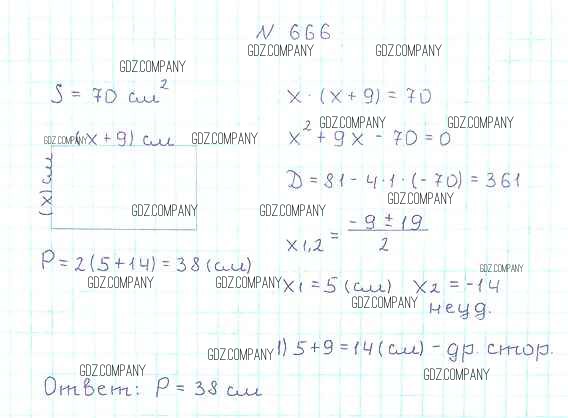 N 666
GDZ.COMPANY GDZ.COMPANY
GDZ.COMPANY
S = 70 см²
x · (x + 9) = 70
GDZ.COMPANY GDZ.COMPANY
GDZ.COMPANY (x + 9) см GDZ.COMPANY
x² + 9x - 70 = 0
(x) см
D = 81 - 4 · 1 · (-70) = 361
GDZ.COMPANY
GDZ.COMPANY GDZ.COMPANY
x1,2 = -9 ± 19 / 2
P = 2(5 + 14) = 38 (см)
GDZ.COMPANY
GDZ.COMPANY GDZ.COMPANY
x1 = 5 (см) x2 = -14
GDZ.COMPANY неуд.
1) 5 + 9 = 14 (см) - др. стор.
GDZ.COMPANY
GDZ.COMPANY GDZ.COMPANY
Ответ: P = 38 см